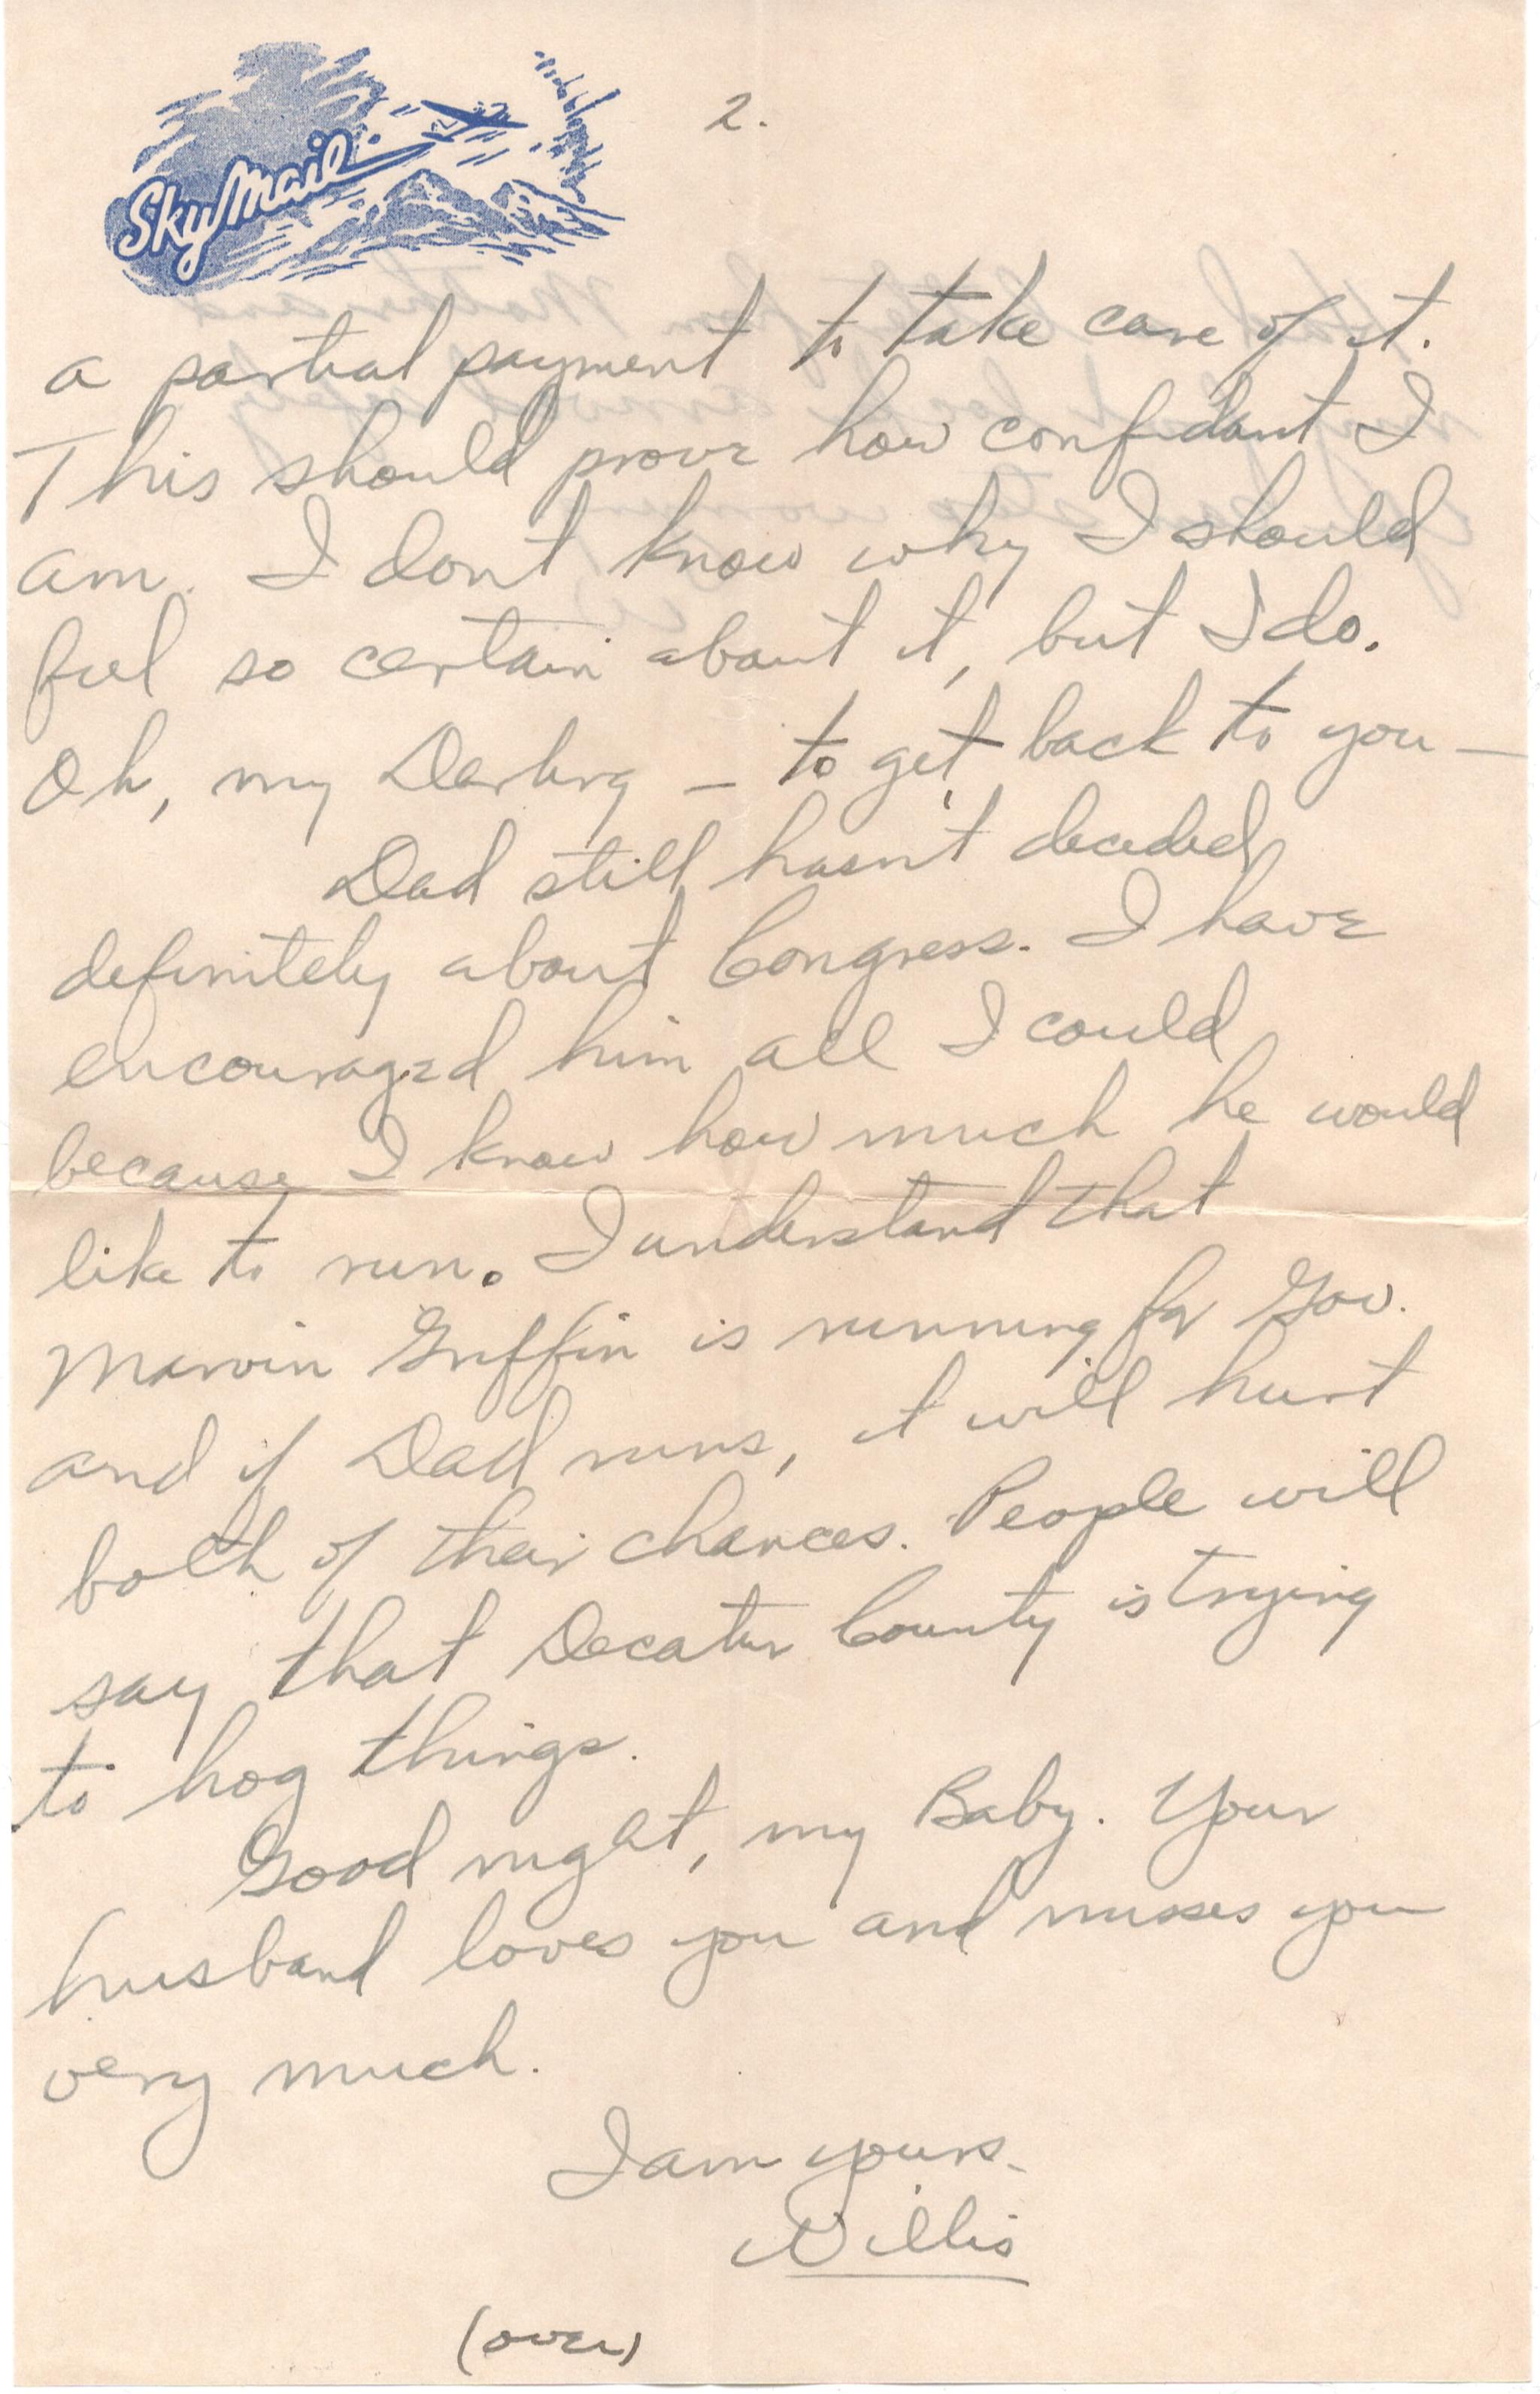 Sky Mail
2.
a partial payment to take care of it.
This should prove how confidant I
am. I dont know why I should
feel so certain about it, but I do.
Oh, my Darling – to get back to you –
Dad still hasn't decided
definitely about Congress. I have
encouraged him all I could
because I know how much he would
like to run. I understand that
Marvin Griffin is running for Gov.
and if Dad runs, it will hurt
both of their chances. People will
say that Decatur County is trying
to hog things.
Good night, my Baby. Your
husband loves you and misses you
very much.
I am yours.
Willis
(over)